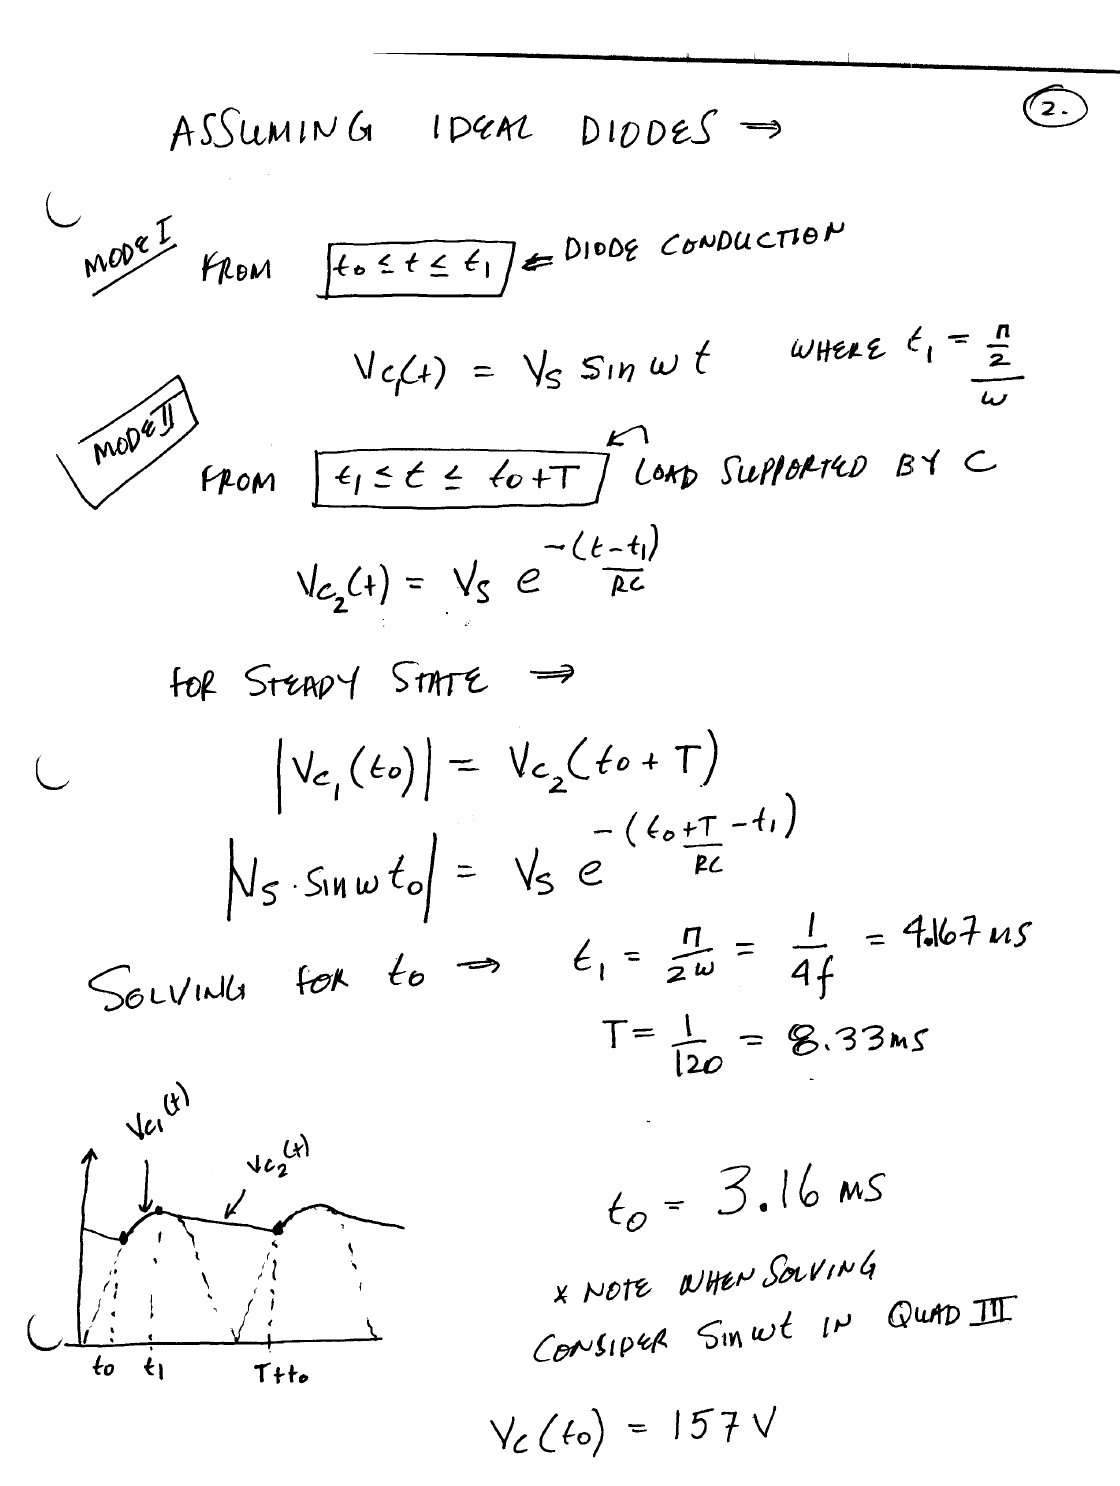 2.
ASSUMING IDEAL DIODES ⇒
MODE I
FROM t₀ ≤ t ≤ t₁ ⇐ DIODE CONDUCTION
Vc₁(t) = Vs sin ωt WHERE t₁ = (π/2)/ω
MODE II
FROM t₁ ≤ t ≤ t₀+T LOAD SUPPORTED BY C
Vc₂(t) = Vs e^(-(t-t₁)/RC)
FOR STEADY STATE ⇒
|Vc₁(t₀)| = Vc₂(t₀+T)
|Vs · sin ωt₀| = Vs e^(-(t₀+T-t₁)/RC)
SOLVING FOR t₀ ⇒ t₁ = π/2ω = 1/4f = 4.167 ms
T = 1/120 = 8.33 ms
Vc₁(t)
Vc₂(t)
t₀ t₁ T+t₀
t₀ = 3.16 ms
* NOTE WHEN SOLVING
CONSIDER Sin ωt IN QUAD III
Vc(t₀) = 157 V